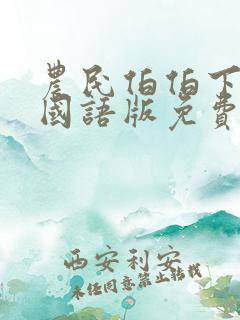 農民伯伯下
國語版免費
西安利安
未经同意禁止转载